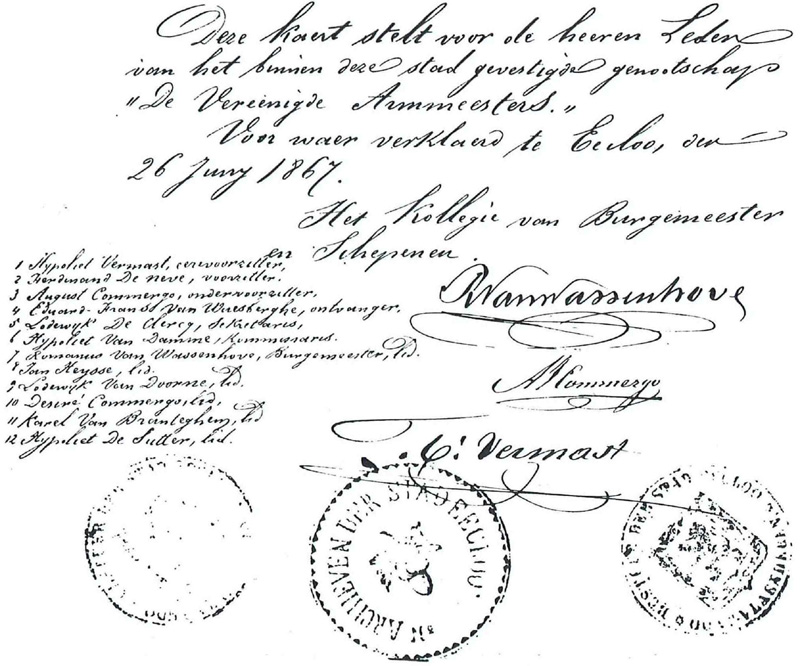 Deze kaert stelt voor de heeren Leden
van het binnen deze stad gevestigde genootschap
"De Vereenigde Armmeesters."
Voor waer verklaerd te Eecloo, den
26 Juny 1867.
Het Kollegie van Burgemeester
en Schepenen.
1 Hypoliet Vermast, eerevoorzitter,
2 Ferdinand De Neve, voorzitter.
3 August Commergo, ondervoorzitter,
4 Eduard-Franss Van Wassberghe, ontvanger.
5 Lodewyk De Clercq, sekretaris,
6 Hypoliet Van Damme, Kommissaris.
7 Romanus Van Wassenhove, Burgemeester, lid.
8 Jan Heysse, lid.
9 Lodewyk Van Doorne, lid.
10 Desiré Commergo, lid,
11 Karel Van Branteghem, lid
12 Hypoliet De Sutter, lid.
R Van Wassenhove
A Commergo
C! Vermast
ARCHIEVEN DER STAD EECLOO
BESTUUR DER STAD EECLOO